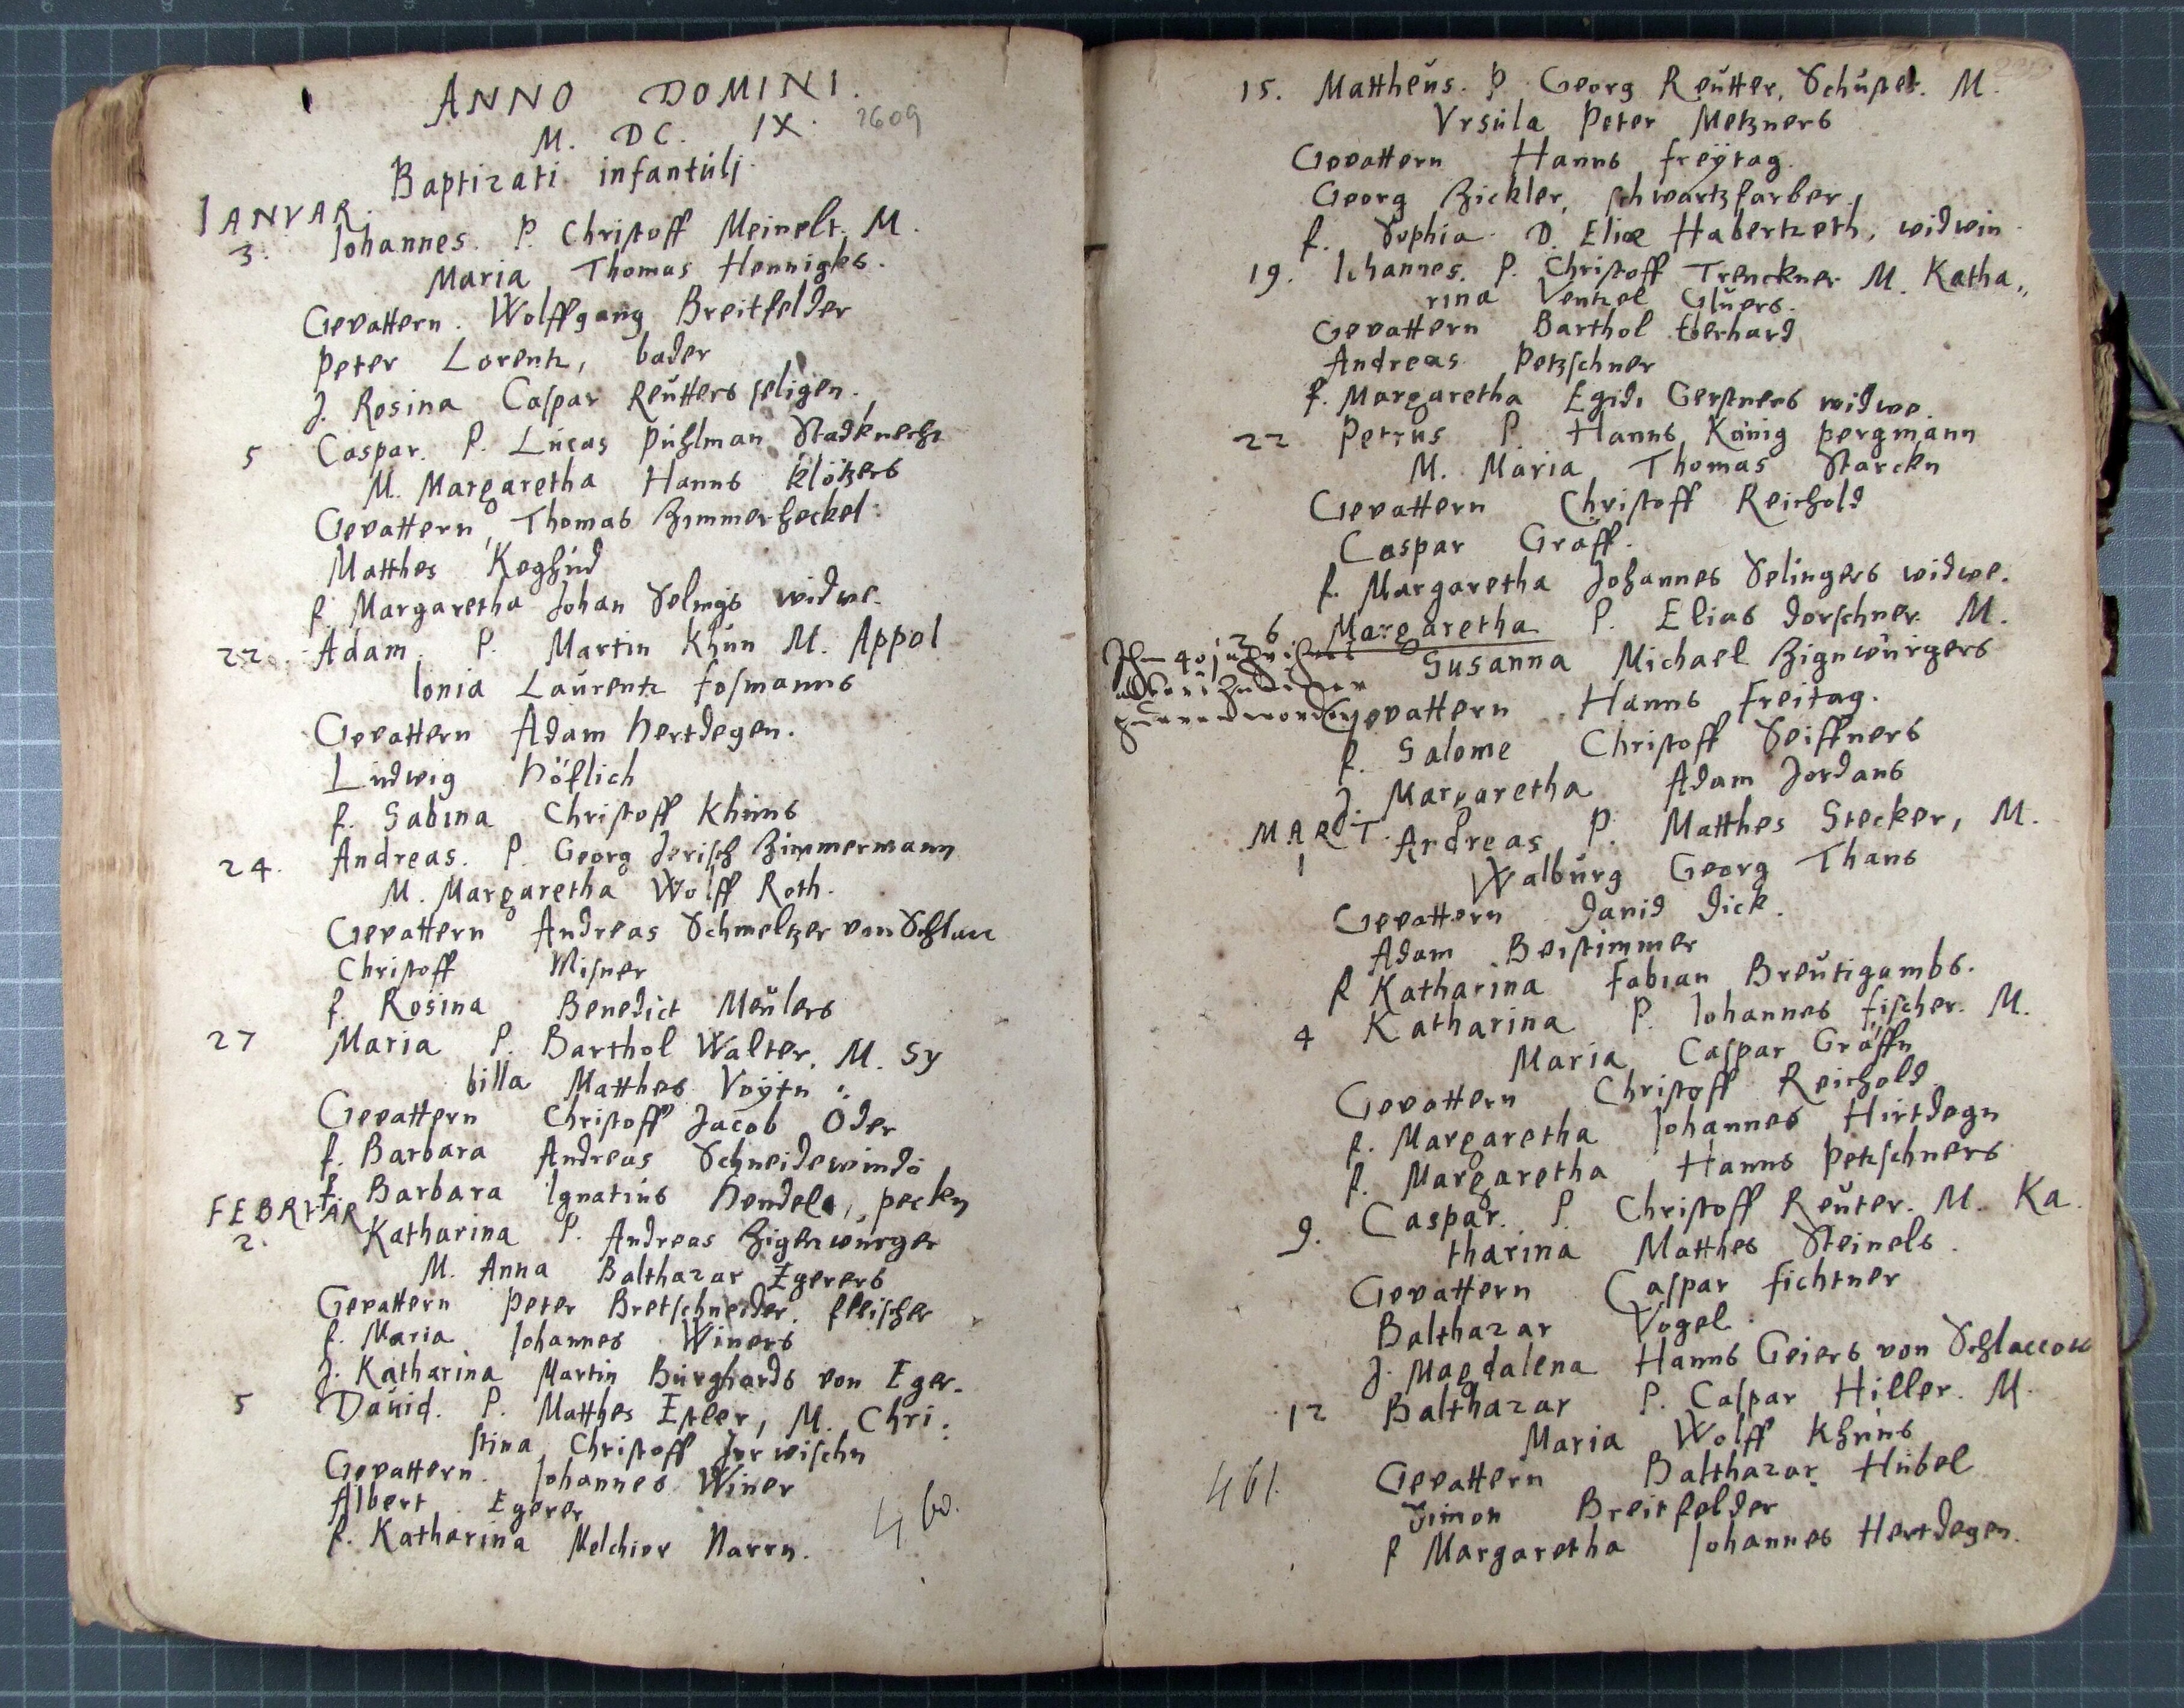 ANNO DOMINI.
M. DC. IX. 1609
Baptizati infantulj.
IANVAR.
3. Iohannes. P. Christoff Meinelt. M.
Maria Thomas Hennigks.
Gevattern. Wolffgang Breitfelder
Peter Lorentz, bader
J. Rosina Caspar Reütters seligen.
5 Caspar. P. Lucas Puhlman Stadknecht
M. Margaretha Hanns klötzers
Gevattern, Thomas Zimmerheckel:
Matthes
f. Margaretha Johan widwe.
22. Adam. P. Martin Khün M. Appol
lonia Laurentz fosmanns
Gevattern Adam Hertdegen.
Ludwig Höflich
f. Sabina Christoff Khüns
24. Andreas. P. Georg Zimmermann
M. Margaretha Wolff Roth.
Gevattern Andreas Schmeltzer von
Christoff Misner
f. Rosina Benedict Meülers
27 Maria P. Barthol Walter. M. Sy
billa Matthes Voÿtn :
Gevattern Christoff Jacob Oder
f. Barbara Andreas Schneidewinds
f. Barbara Ignatius Hendels, peckn
FEBRVAR
2. Katharina P. Andreas Zigenwürger
M. Anna Balthazar Egerers
Gevattern Peter Bretschneider. fleischer
f. Maria Iohannes Winers
J. Katharina Martin Burghards von Eger.
5 Dauid. P. Matthes Epler, M. Chri:
stina Christoff
Gevattern. Johannes Winer
Albert Egerer
f. Katharina Melchior Narrn.
460.
15. Mattheüs. P. Georg Reütter, Schuster. M.
Vrsula Peter Metzners
Gevattern Hanns freÿtag.
Georg Zickler, schwartzfarber,
f. Sophia D. Eliæ Habertzeth, widwin.
19. Iohannes. P. Christoff Trenckner M. Katha,,
rina Ventzel Glüers.
Gevattern Barthol Eberhard
Andreas Petzschner
f. Margaretha Egidi Gerstners widwe.
22 Petrus P. Hanns König pergmann
M. Maria Thomas Starckn
Gevattern Christoff Reichold
Caspar Gräff.
f. Margaretha Johannes Selingers widwe.
26. Margaretha P. Elias Dorschner M.
Susanna Michael Zignwürgers
Gevattern Hanns Freitag.
f. Salome Christoff Seiffners
J. Margaretha Adam Jordans
MART.
1 Andreas P. Matthes Stecker, M.
Walburg Georg Thans
Gevattern David Dick.
Adam Beistimmer
f Katharina Fabian Breütigambs.
4 Katharina P. Iohannes fischer. M.
Maria Caspar Gräffn
Gevattern Christoff Reichold
f. Margaretha Johannes Hirtdegn
f. Margaretha Hanns Petzschners
9. Caspar. P. Christoff Reüter. M. Ka.
tharina Matthes Steinels.
Gevattern Caspar fichtner
Balthazar Vogel.
J. Magdalena Hanns Geiers von
12 Balthazar P. Caspar Hiller. M.
Maria Wolff Khüns
Gevattern Balthazar Hübel
Simon Breitfelder
f Margaretha Johannes Hertdegen.
461.